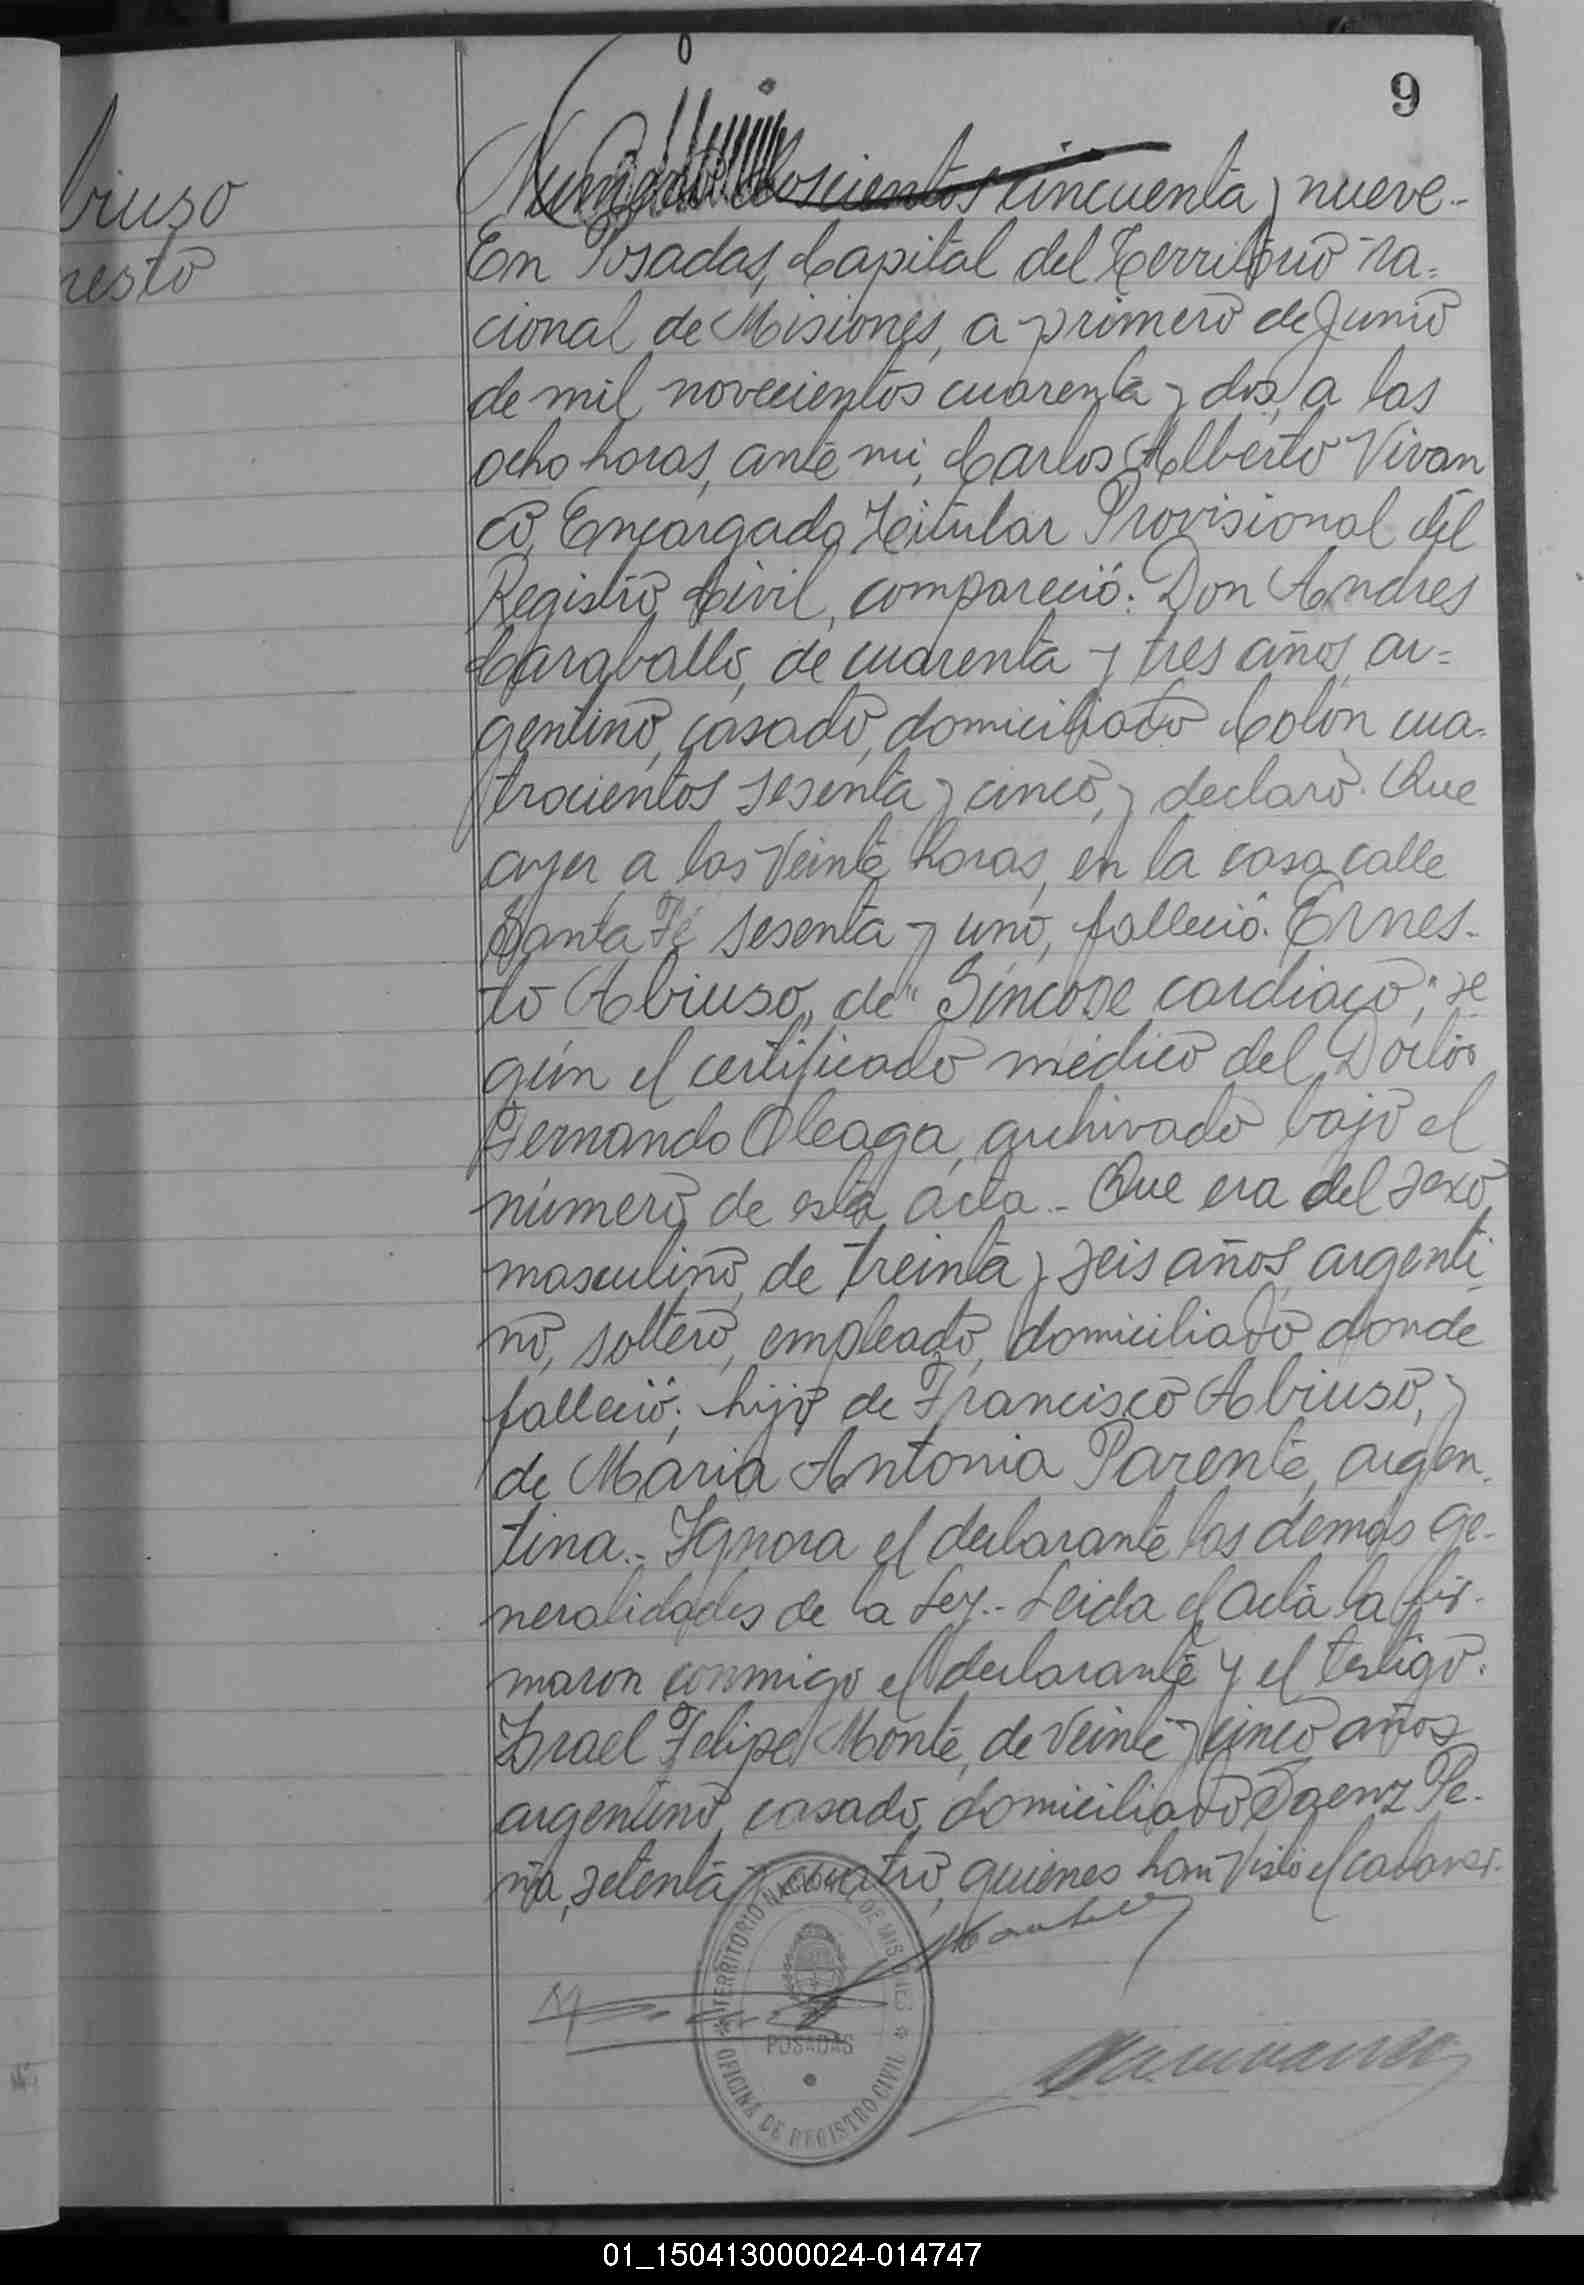 9
briuso
nesto
Número doscientos cincuenta y nueve.-
En Posadas, Capital del Territorio Na=
cional de Misiones, a primero de Junio
de mil novecientos cuarenta y dos, a las
ocho horas, ante mi, Carlos Alberto Vivan
co, Encargado Titular Provisional del
Registro Civil, compareció: Don Andres
Caraballo, de cuarenta y tres años, ar=
gentino, casado, domiciliado Colón cua-
trocientos sesenta y cinco, y declaró: Que
ayer a las veinte horas, en la casa calle
Santa Fé sesenta y uno, falleció: Ernes-
to Abiuso, de "Síncope cardiaco", se
gún el certificado médico del Doctor
Fernando Oleaga, archivado bajo el
número de esta acta.- Que era del sexo
masculino, de treinta y seis años, argenti
no, soltero, empleado, domiciliado donde
falleció; hijo de Francisco Abiuso, y
de Maria Antonia Parente, argen-
tina.- Ignora el declarante las demás ge-
neralidades de la Ley.- Leida el acta la fir-
maron conmigo el declarante y el testigo:
Israel Felipe Monte, de veinte y cinco años
argentino, casado, domiciliado Saenz Pe-
ña, setenta y cuatro, quienes han visto el cadaver.-
TERRITORIO NACIONAL DE MISIONES
POSADAS
OFICINA DE REGISTRO CIVIL
01_150413000024-014747